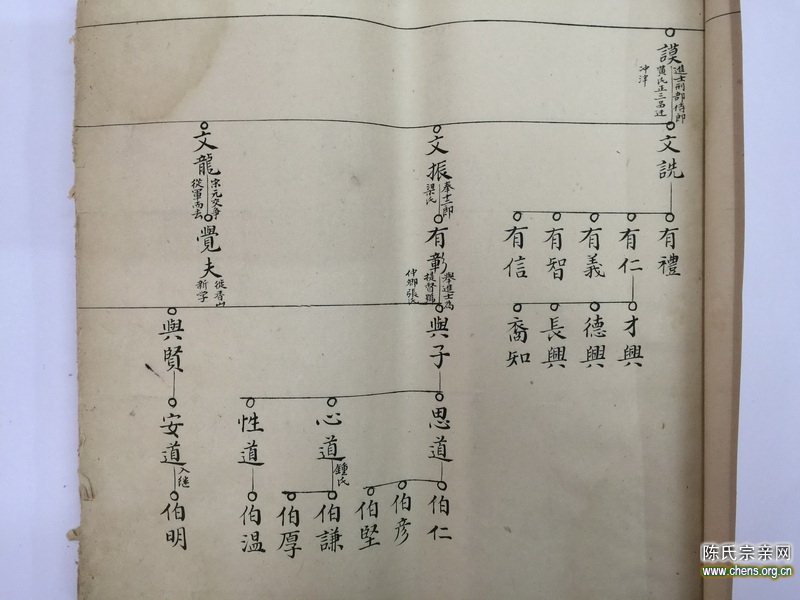 謨
進士刑部侍郎
冲洋
文詵
有禮
有仁
有義
有智
有信
才興
德興
長興
裔知
文振
奉士郎
梁氏
有彰
舉進士為
提督號
仲卿張氏
興子
思道
心道
鍾氏
性道
伯仁
伯彥
伯堅
伯謙
伯厚
伯温
文龍
宋元交爭
從軍而去
覺夫
從香山
新字
興賢
安道
入繼
伯明
陈氏宗亲网
www.chens.org.cn